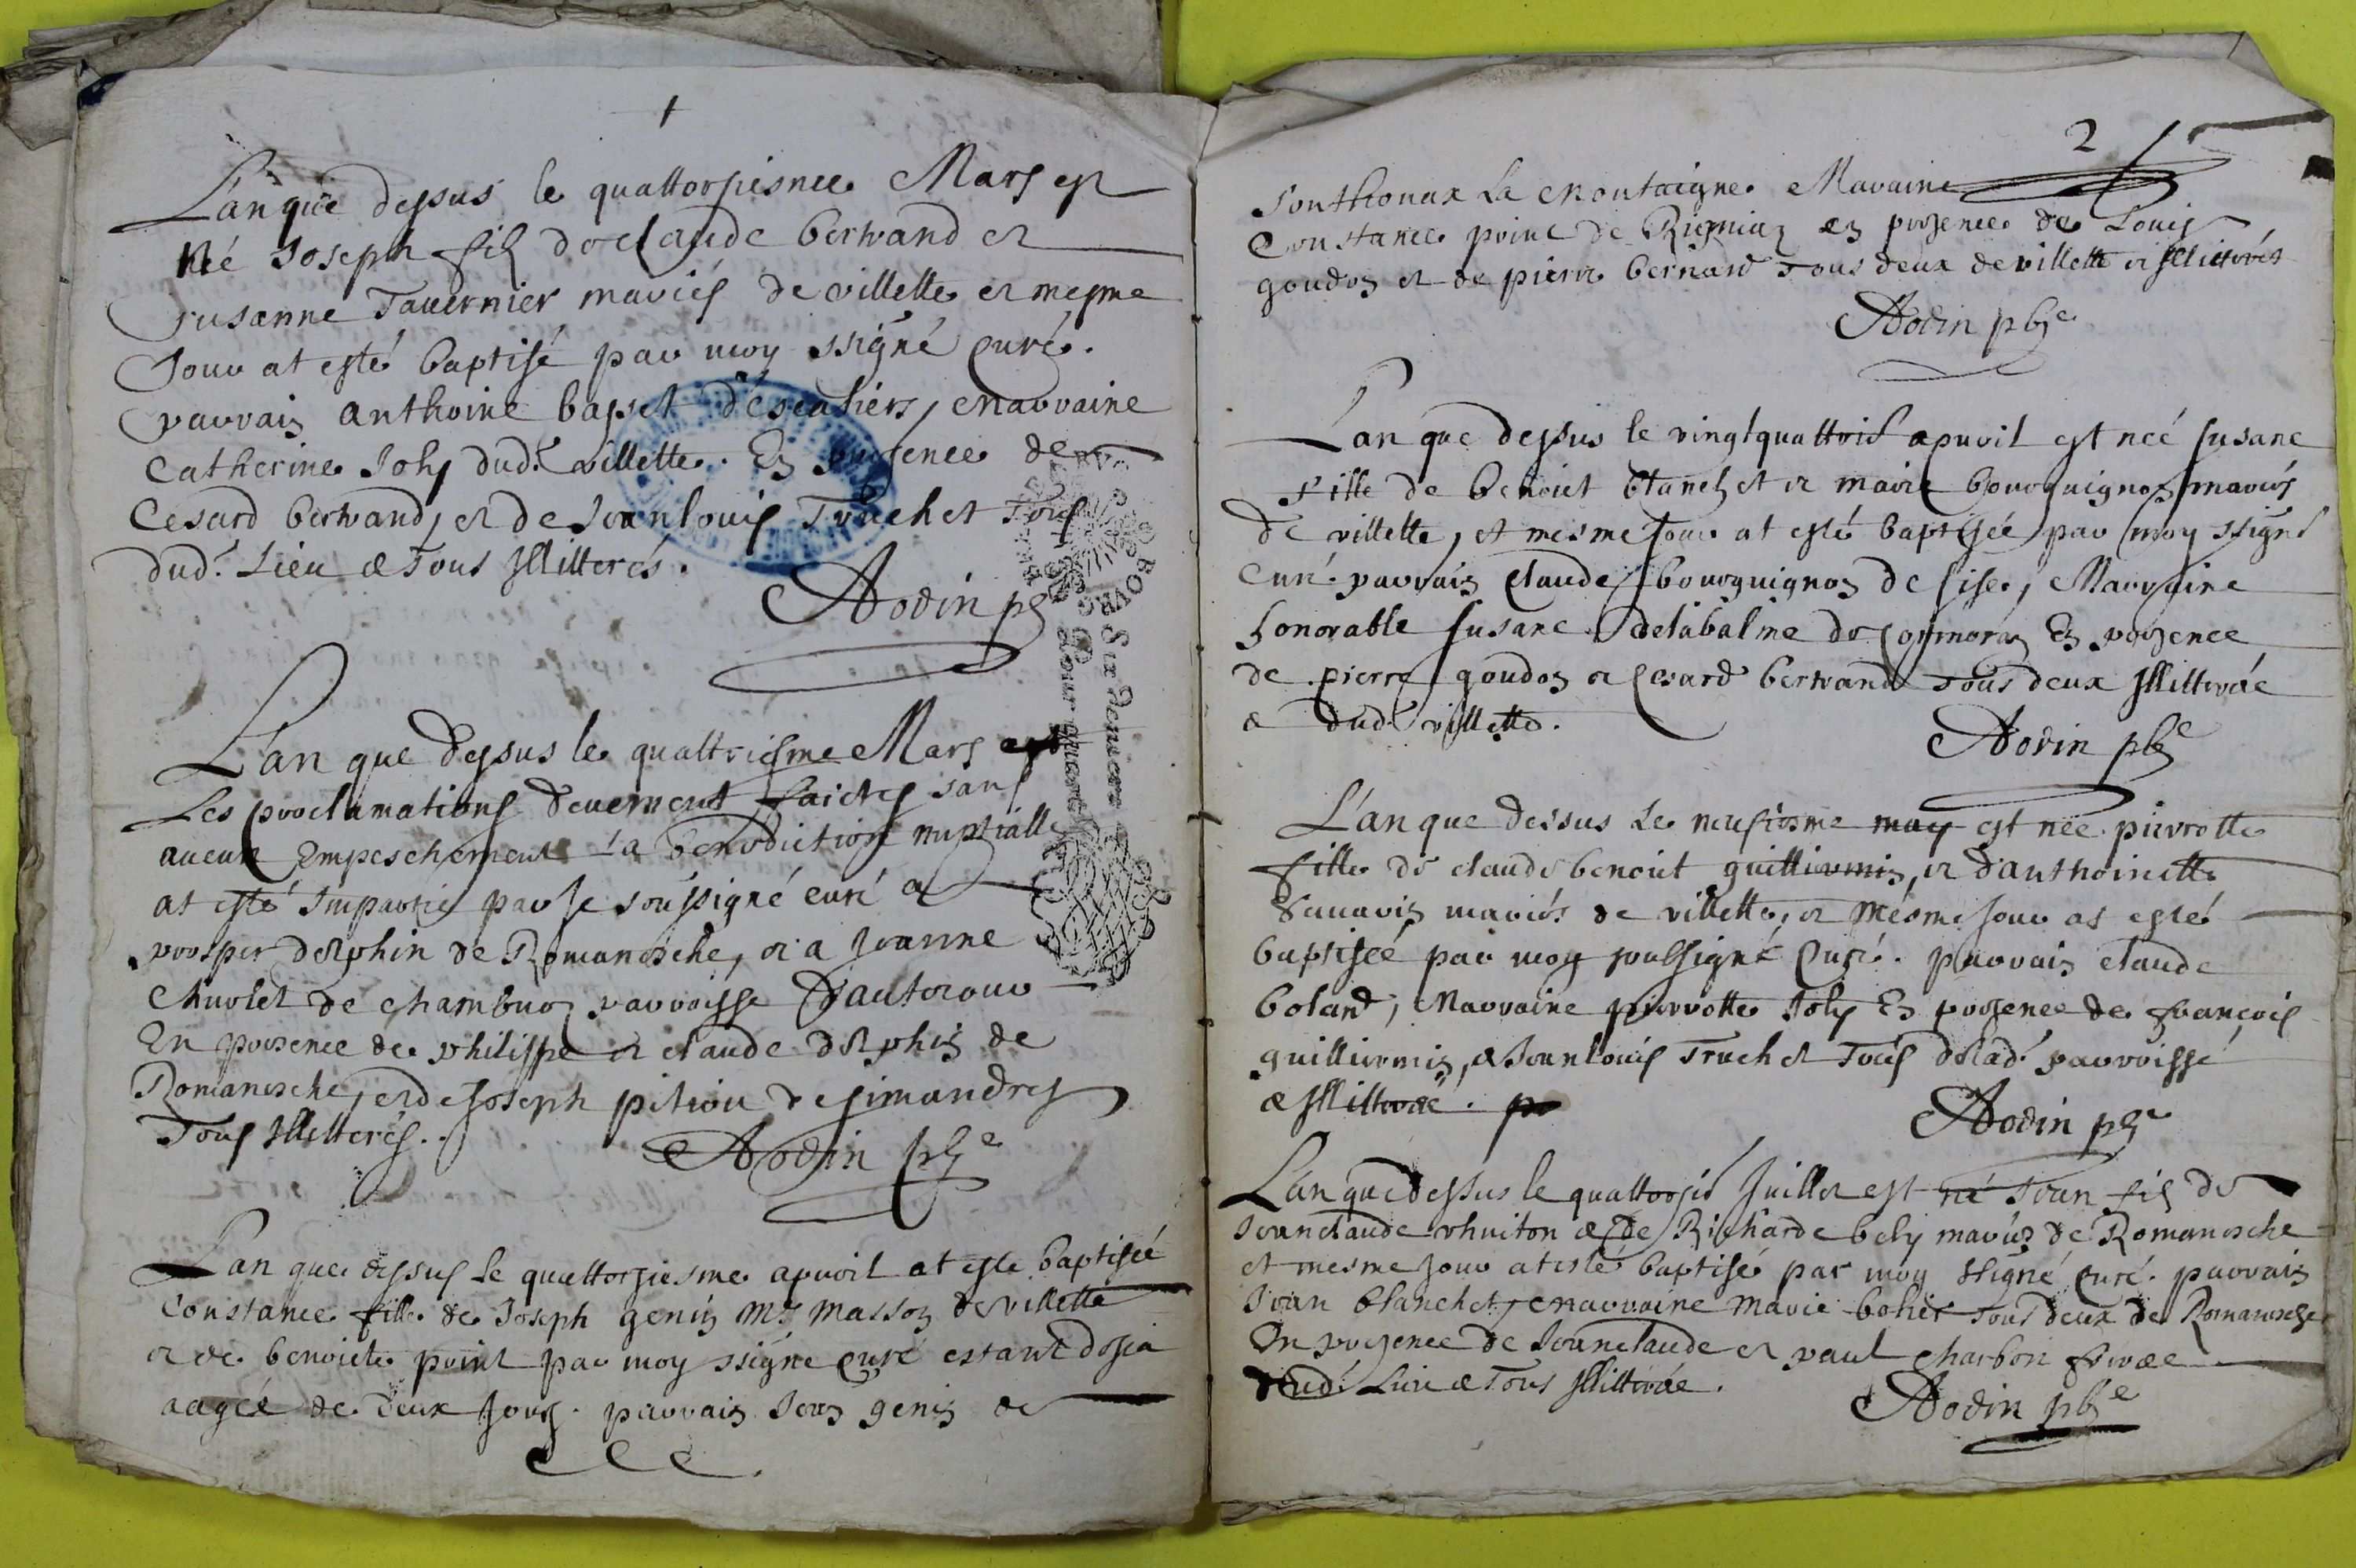 L'an que dessus le quattorsiesmee Mars est
Né Joseph fils de Claude Bertrand et
Susanne Tavernier mariés de villette et mesme
Jour at esté baptisé par moy ssigné curé.
parrain anthoine bapset marraine
Catherine Joly dud.t villette. En presence de
Cesard bertrand, et de Jeanlouis Truchet Tous
dud.t Lieu & Tous Illitterés.
Aodin pb
L'an que dessus le quattriesme Mars
Les proclamations deuement faictes sans
aucun Empeschement la benediction nuptialle
at esté Impartie par Je soussigné curé a
prosper delphin de Romanesche, et a Jeanne
Chuolet de Chambuo parroisse d'autrour
En presence de philippe et claude delphin de
Romanesche, et de Joseph pitiou de simandres
Tous Illitterés.
Aodin pbe
L'an que dessus le quattorziesme apvril at esté baptisée
Constance fille de Joseph genin Mr masson de villette
et de benoicte point par moy ssigné curé estant desia
aagée de deux Jours. parrain Jean genin de
Sur deniers
Pour
2
Sonthonax La Montaigne Maraine
Constance point de Rigniaz en presence de Louis
goudon et de pierre bernard Tous deux de villette et Illiterés
Aodin pbe
L'an que dessus le vingtquattrie apvril est neé susane
fille de benoict blanchet et marie bourguignon mariés
de villette, et mesme Jour at esté baptisée par moy ssigné
Curé. parrain Claude bourguignon de sise, Marraine
honorable susane delabalme de Cormoran En presence
de pierre goudon et Cesard bertrand Tous deux Illitteré
& dud.t villette.
Aodin pbe
L'an que dessus Le neufiesme may est née pierrotte
fille de claude benoict guilliermin, et d'anthoinette
mariés de villette, et mésme Jour at esté
baptisée par moy soussigné Curé. parrain claude
boland, Marraine pierrotte Joly En presence de françois
guilliermin, & Jeanlouis Truchet Tous delad.t parroisse
& Illitteré.
Aodin pbe
L'an que dessus le quattorsie Juillet est né Jean fils de
Jeanclaude chuiton & de Richarde bely mariés de Romanesche
et mesme Jour at esté baptisé par moy ssigné curé. parrain
Jean blanchet, marraine marie boher Tous deux de Romanesche
En presence de Jeanclaude et paul charbon freres
dud.t Lieu & Tous Illitteré.
Aodin pbe